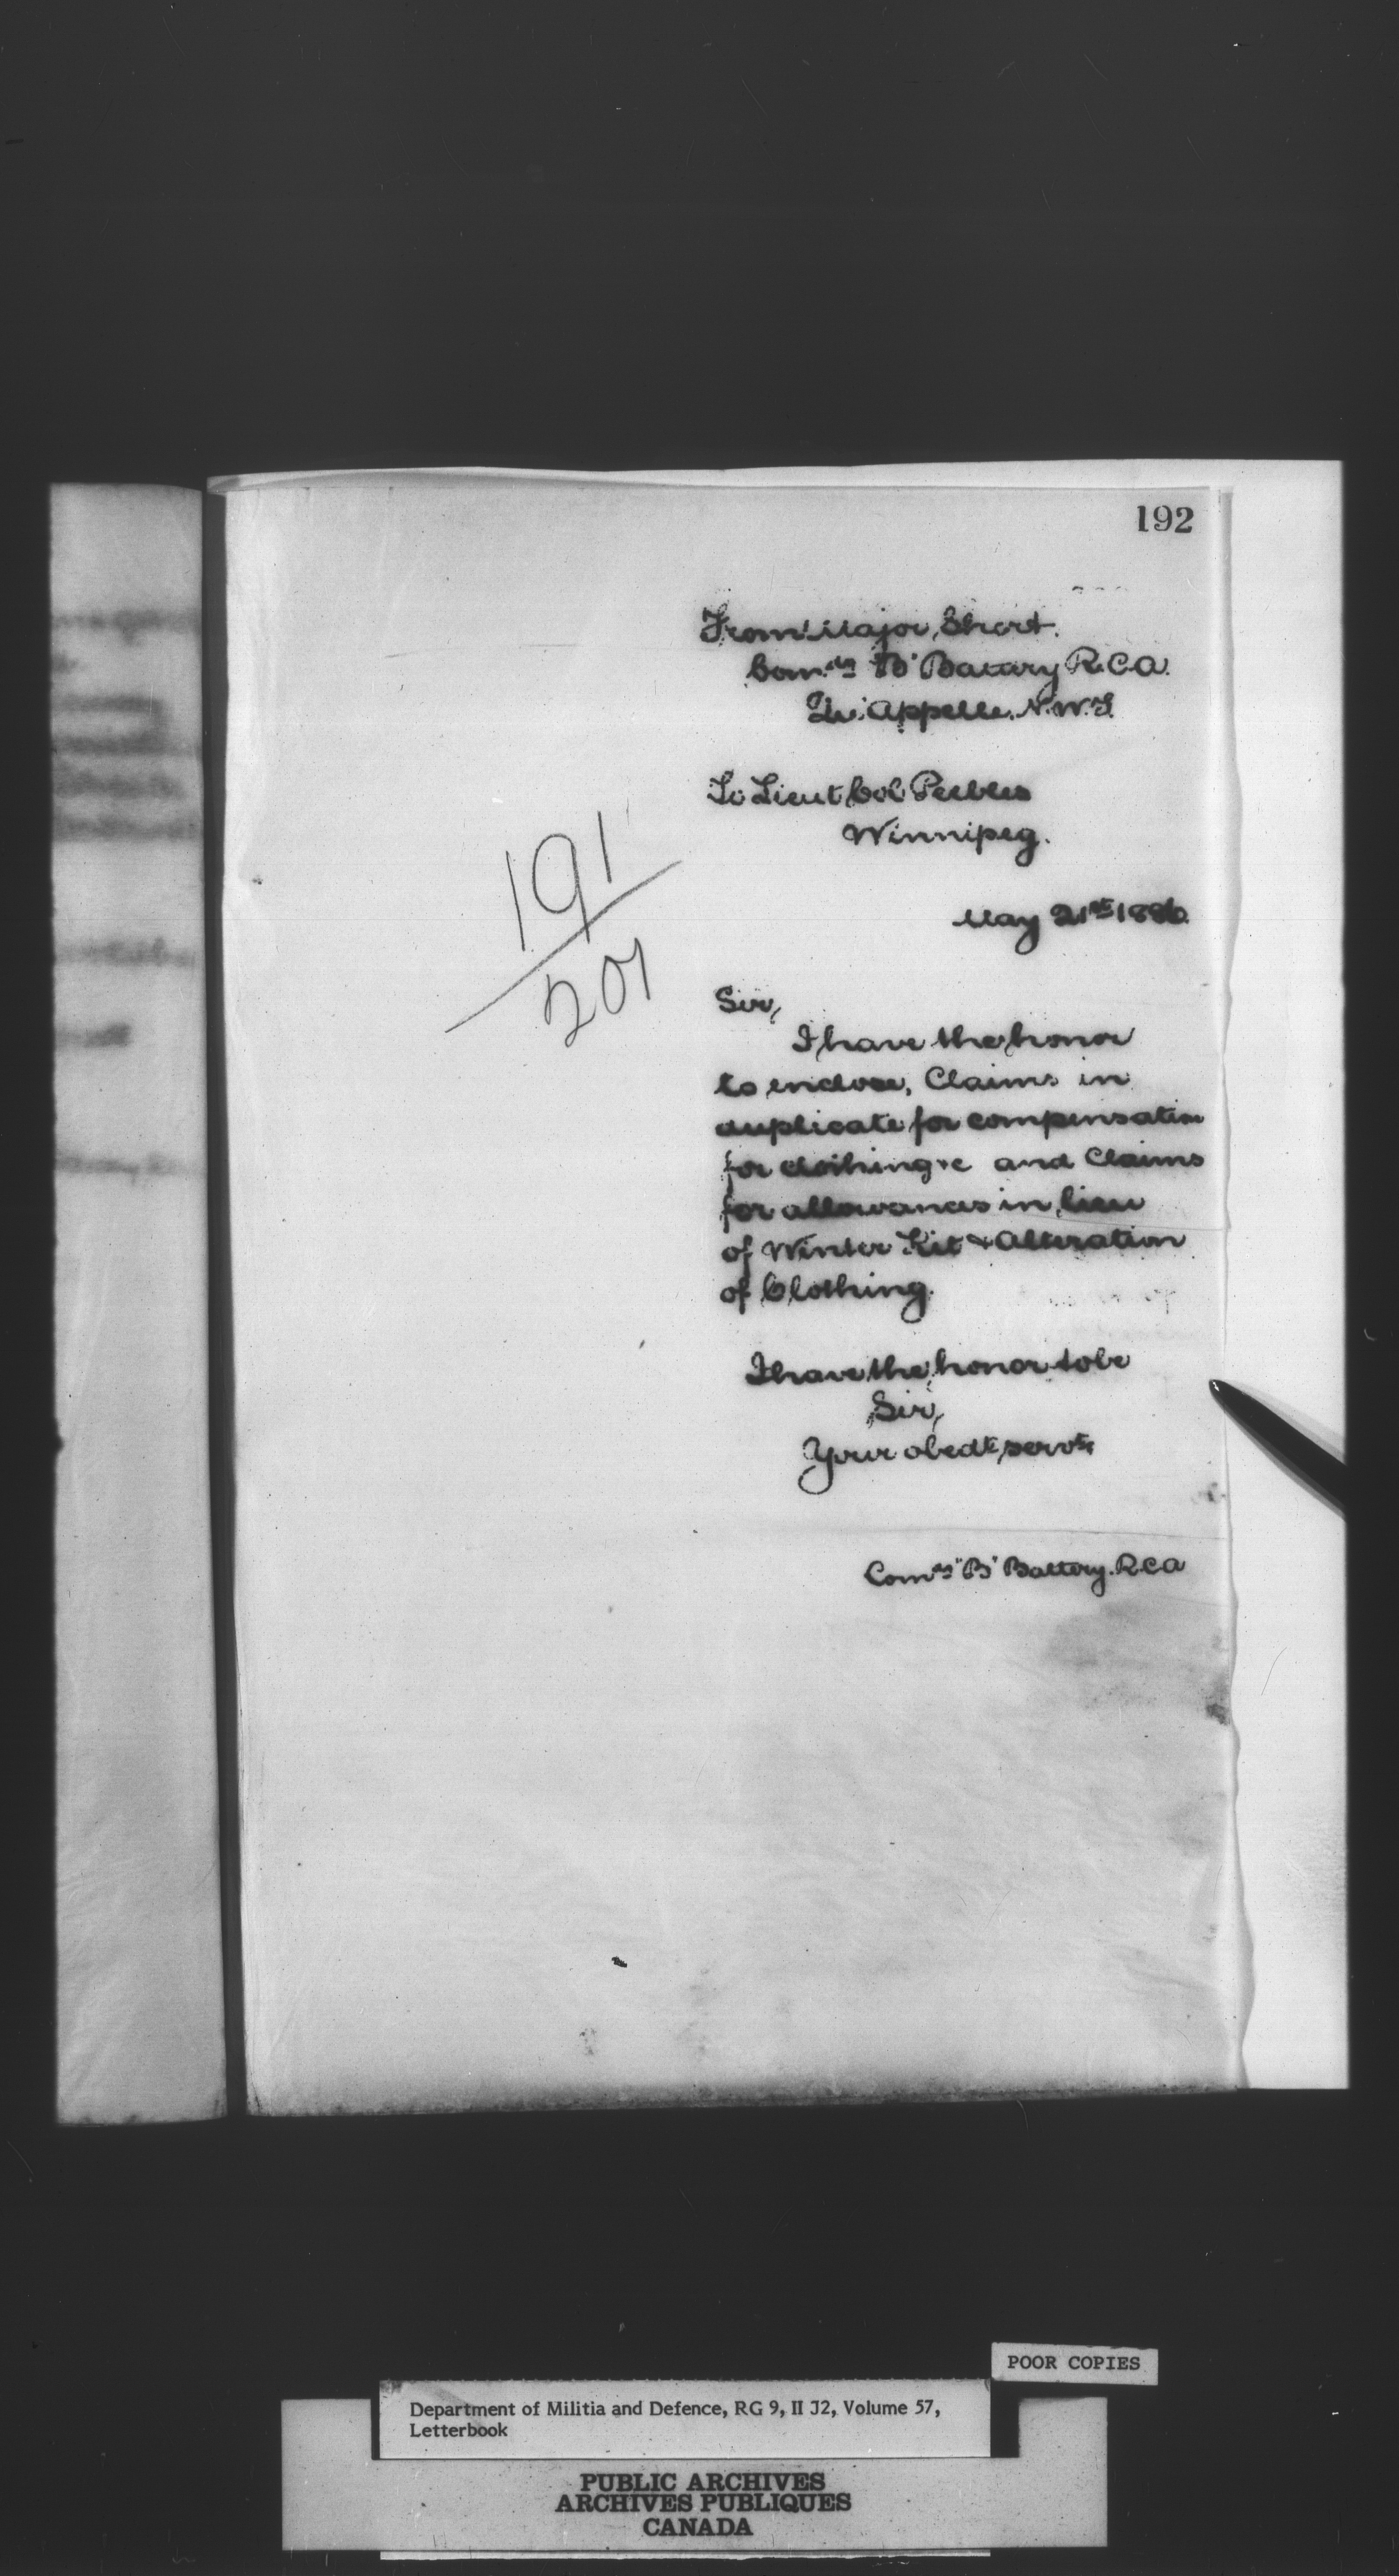 192
From Major Short.
Comdg "B" Battery R.C.A.
Qu'Appelle. N.W.T.
To Lieut Col Peebles
Winnipeg.
May 21st 1886.
191
201
Sir,
I have the honor
to enclose, Claims in
duplicate for compensation
for clothing &c and Claims
for allowances in lieu
of Winter Kit & Alteration
of Clothing.
I have the honor to be
Sir,
Your obedt servt,
Comdg "B" Battery. R.C.A
POOR COPIES
Department of Militia and Defence, RG 9, II J2, Volume 57,
Letterbook
PUBLIC ARCHIVES
ARCHIVES PUBLIQUES
CANADA